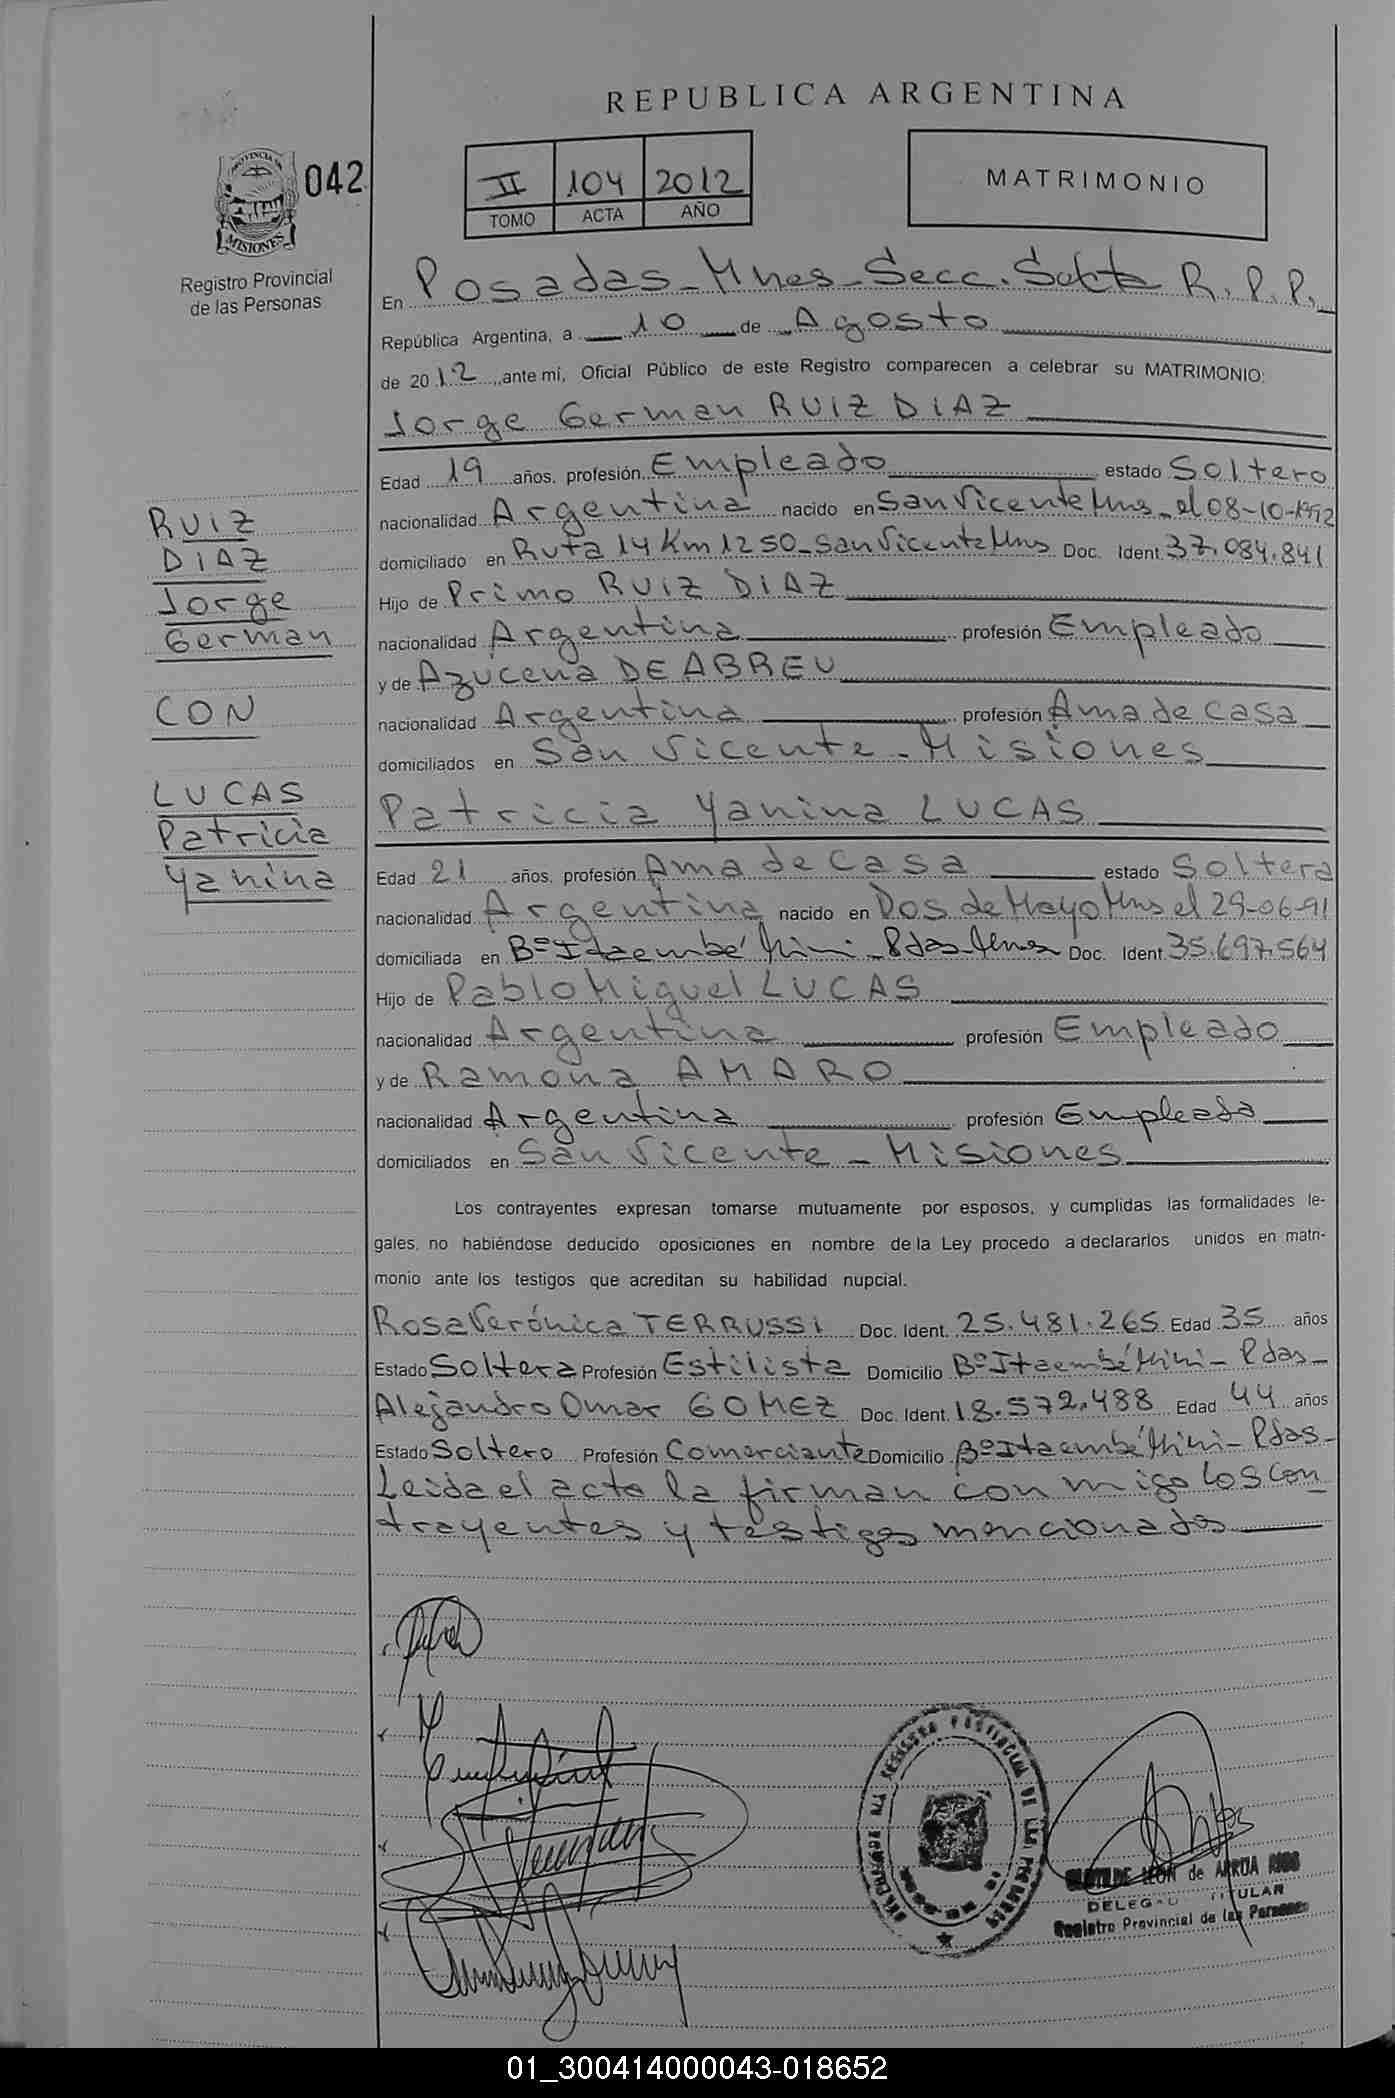 REPUBLICA ARGENTINA
PROVINCIA DE
MISIONES
042
Registro Provincial
de las Personas
II 104 2012
TOMO ACTA AÑO
MATRIMONIO
En Posadas - Mnes - Secc. Sexta R.P.P.
República Argentina, a 10 de Agosto
de 2012, ante mí, Oficial Público de este Registro comparecen a celebrar su MATRIMONIO:
Jorge German RUIZ DIAZ
Edad 19 años, profesión Empleado estado Soltero
nacionalidad Argentina nacido en San Vicente Mns - el 08-10-1992
domiciliado en Ruta 14 Km 1250 - San Vicente Mns Doc. Ident. 37.084.841
Hijo de Primo RUIZ DIAZ
nacionalidad Argentina profesión Empleado
y de Azucena DE ABREU
nacionalidad Argentina profesión Ama de casa
domiciliados en San Vicente - Misiones
Patricia Yanina LUCAS
Edad 21 años, profesión Ama de casa estado Soltera
nacionalidad Argentina nacido en Dos de Mayo Mns el 29-06-91
domiciliada en Bº Itaembé Mini - Pdas - Mnes Doc. Ident. 35.697.564
Hijo de Pablo Miguel LUCAS
nacionalidad Argentina profesión Empleado
y de Ramona AMARO
nacionalidad Argentina profesión Empleada
domiciliados en San Vicente - Misiones
RUIZ
DIAZ
Jorge
German
CON
LUCAS
Patricia
Yanina
Los contrayentes expresan tomarse mutuamente por esposos, y cumplidas las formalidades le-
gales, no habiéndose deducido oposiciones en nombre de la Ley procedo a declararlos unidos en matri-
monio ante los testigos que acreditan su habilidad nupcial.
Rosa Verónica TERRUSSI Doc. Ident. 25.481.265 Edad 35 años
Estado Soltera Profesión Estilista Domicilio Bº Itaembé Mini - Pdas -
Alejandro Omar GOMEZ Doc. Ident. 18.572.488 Edad 44 años
Estado Soltero Profesión Comerciante Domicilio Bº Itaembé Mini - Pdas -
Leida el acta la firman con migo los con
trayentes y testigos mencionados
CLOTILDE LEON de ARRUA RIOS
DELEGADA TITULAR
Registro Provincial de las Personas
01_300414000043-018652